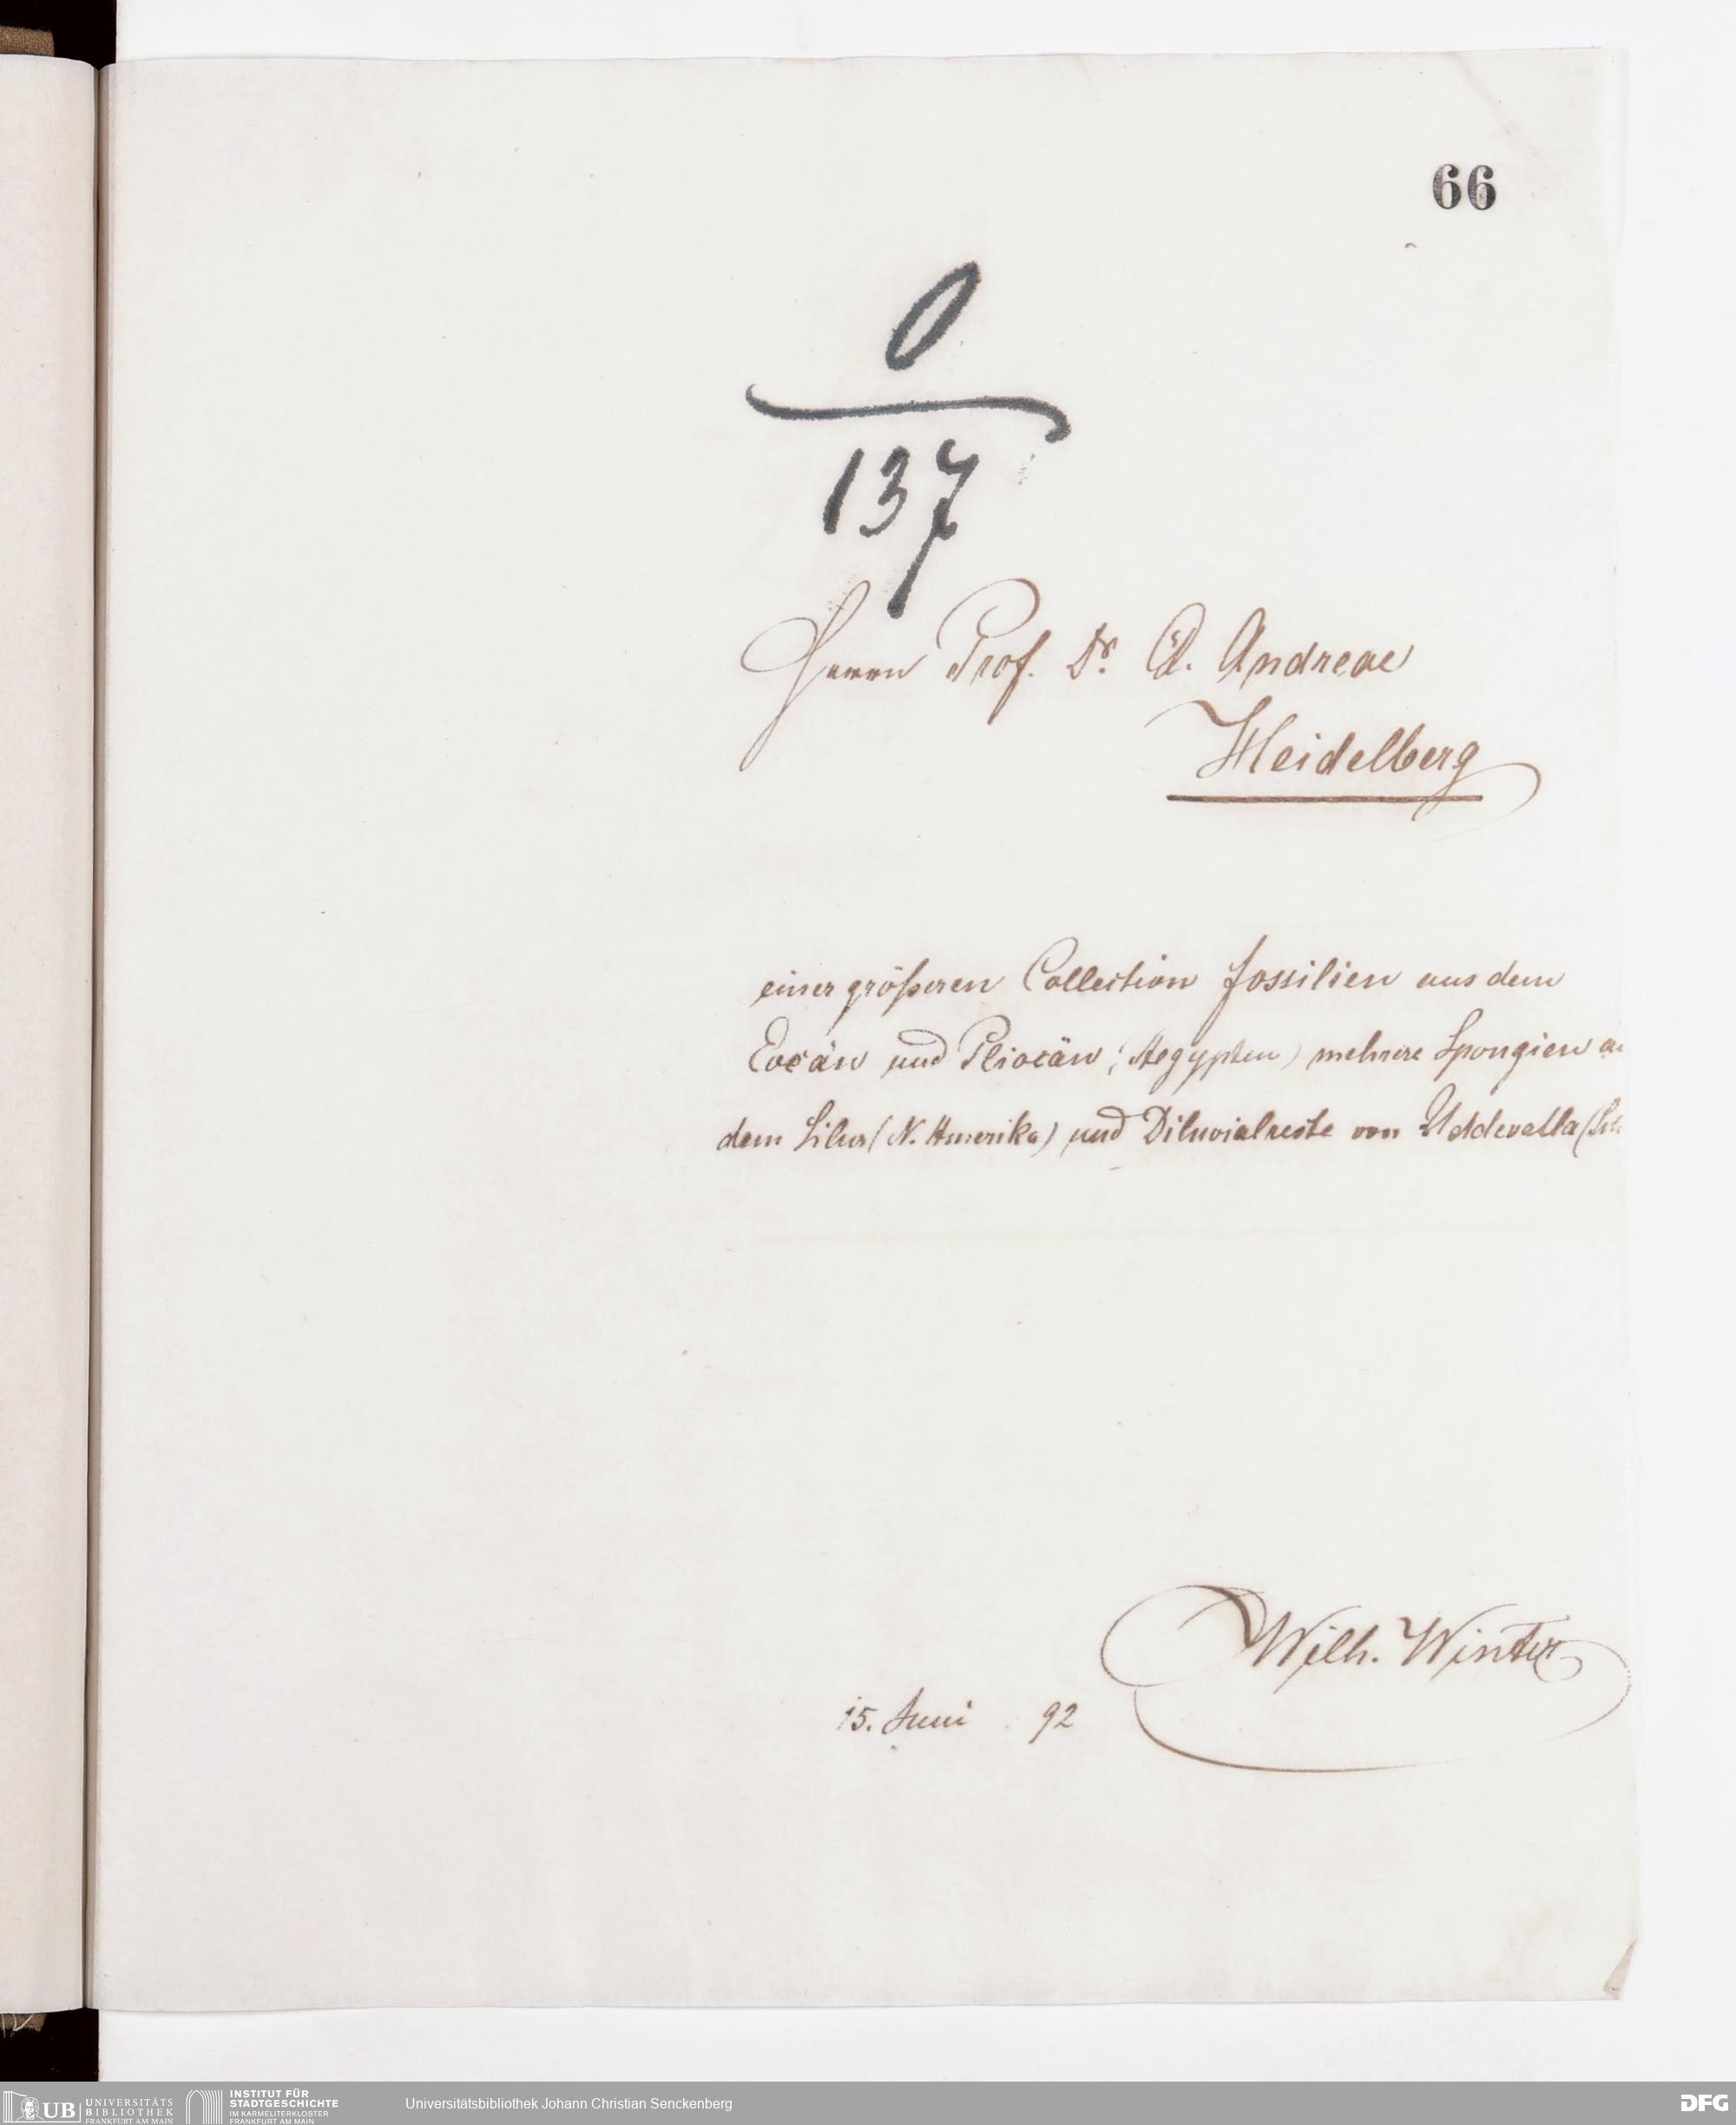 66
0
137
Herrn Prof. Dr. A. Andreae
Heidelberg
einer größeren Collection Fossilien aus dem
Eocän und Pliocän (Aegypten) mehrere Spongien
dem Silur (N. Amerika) und Diluvialreste von Uddevalla
Wilh. Winter
15. Juni 92
UB UNIVERSITÄTS
BIBLIOTHEK
FRANKFURT AM MAIN
INSTITUT FÜR
STADTGESCHICHTE
IM KARMELITERKLOSTER
FRANKFURT AM MAIN
Universitätsbibliothek Johann Christian Senckenberg
DFG